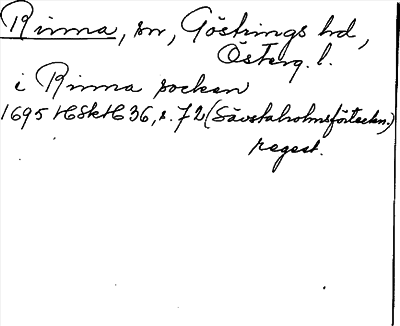 Rinna, sn, Göstrings hd,
Österg. l.
i Rinna socken
1695 HSkH 36, s. 72 (Sävstaholmsförteckn.)
regest.